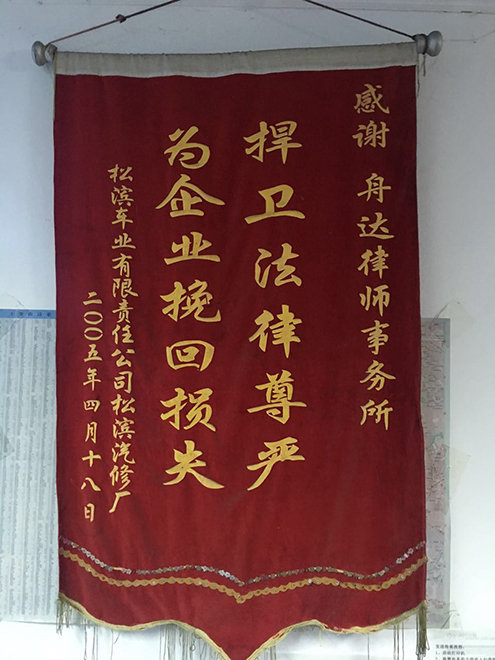 感谢 舟达律师事务所
捍卫法律尊严
为企业挽回损失
松滨车业有限责任公司松滨汽修厂
二〇〇五年四月十八日